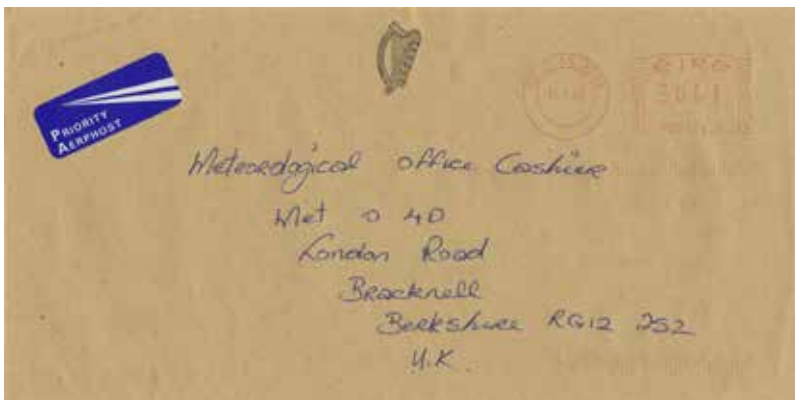 PRIORITY
AERPHOST
EIRE
Meteorological Office Cashier
Met O 4D
London Road
Bracknell
Berkshire RG12 2SZ
U.K.